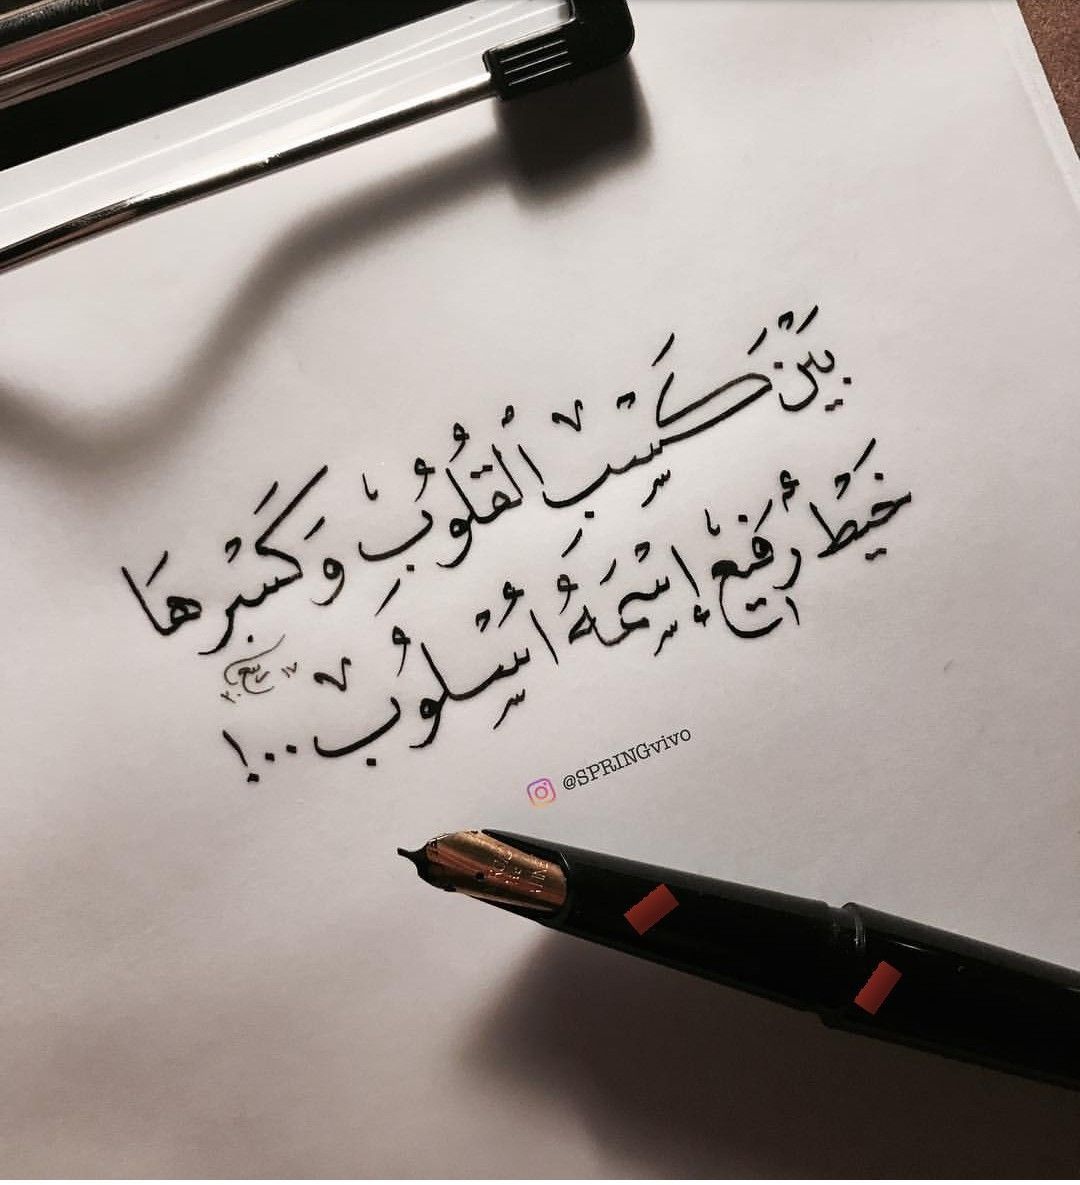 بَيْنَ كَسْبِ ٱلْقُلُوبِ وَكَسْرِهَا
خَيْطٌ رَفِيعٌ إِسْمُهُ أُسْلُوبٌ ..!
ربيع ١٧
@SPRINGvivo